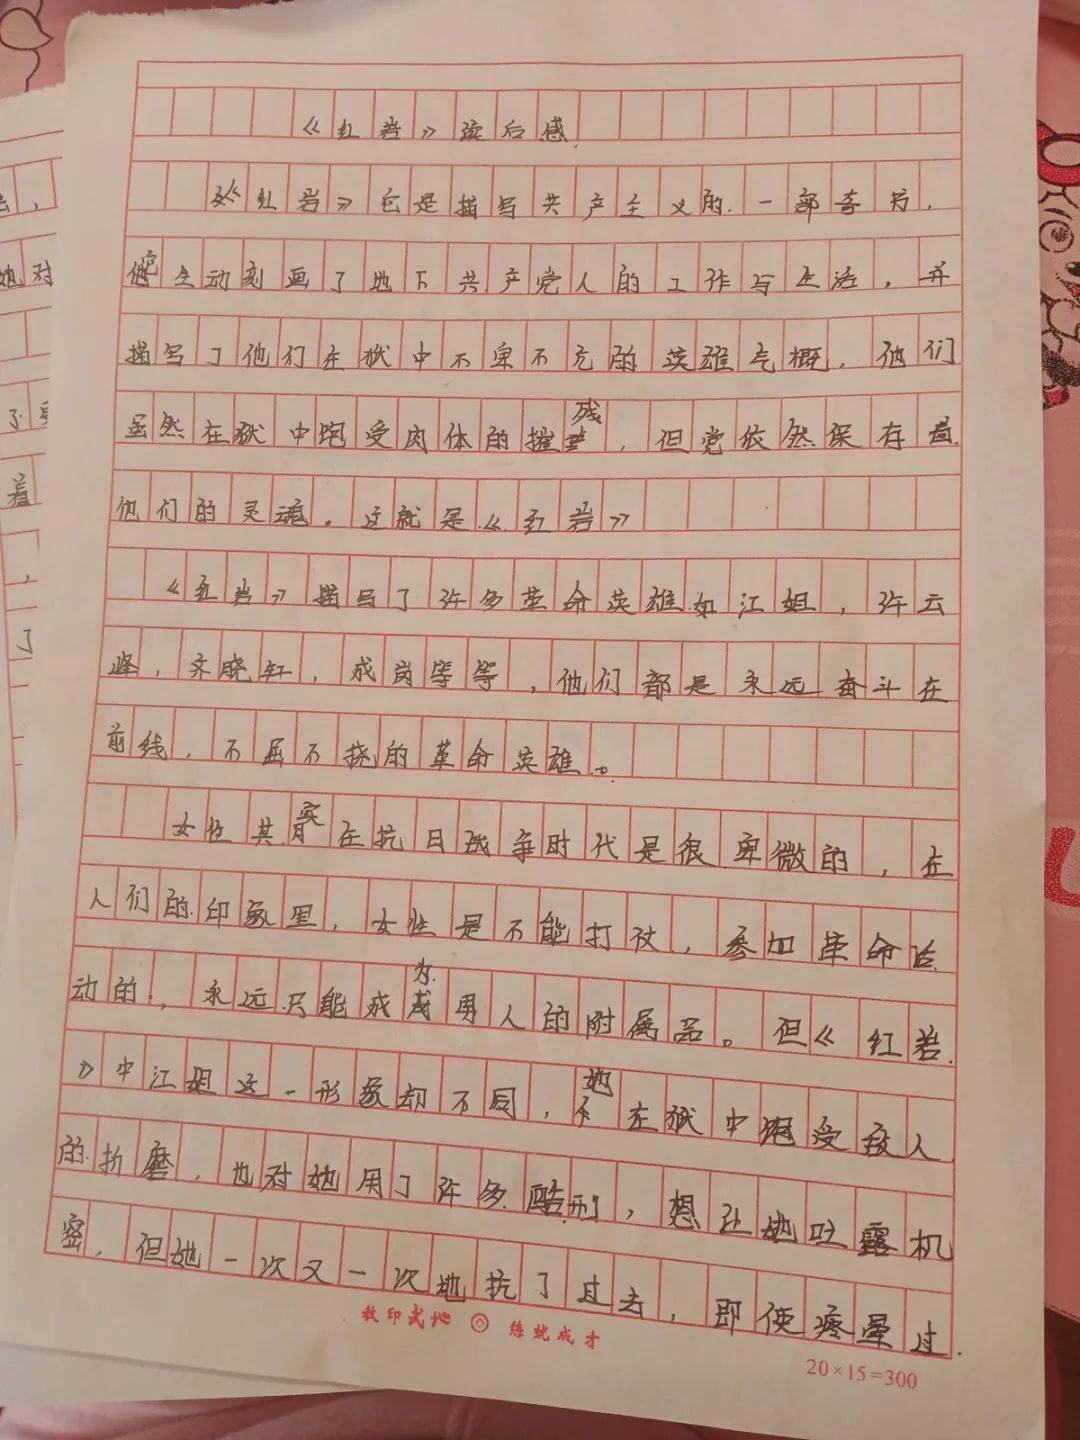 《红岩》读后感
《红岩》它是描写共产主义的一部奇书,
它生动刻画了地下共产党人的工作与生活,并
描写了他们在狱中不屈不亢的英雄气概,他们
虽然在狱中饱受肉体的摧残,但党依然保存着
他们的灵魂。这就是《红岩》
《红岩》描写了许多革命英雄如江姐,许云
峰,齐晓轩,成岗等等,他们都是永远奋斗在
前线,不屈不挠的革命英雄。
女性其实在抗日战争时代是很卑微的,在
人们的印象里,女性是不能打仗,参加革命活
动的,永远只能成为男人的附属品。但《红岩
》中江姐这一形象却不同,她在狱中饱受敌人
的折磨,也对她用了许多酷刑,想让她吐露机
密,但她一次又一次地抗了过去,即使疼晕过
教印武地 练就成才
20×15=300
着
了
她对